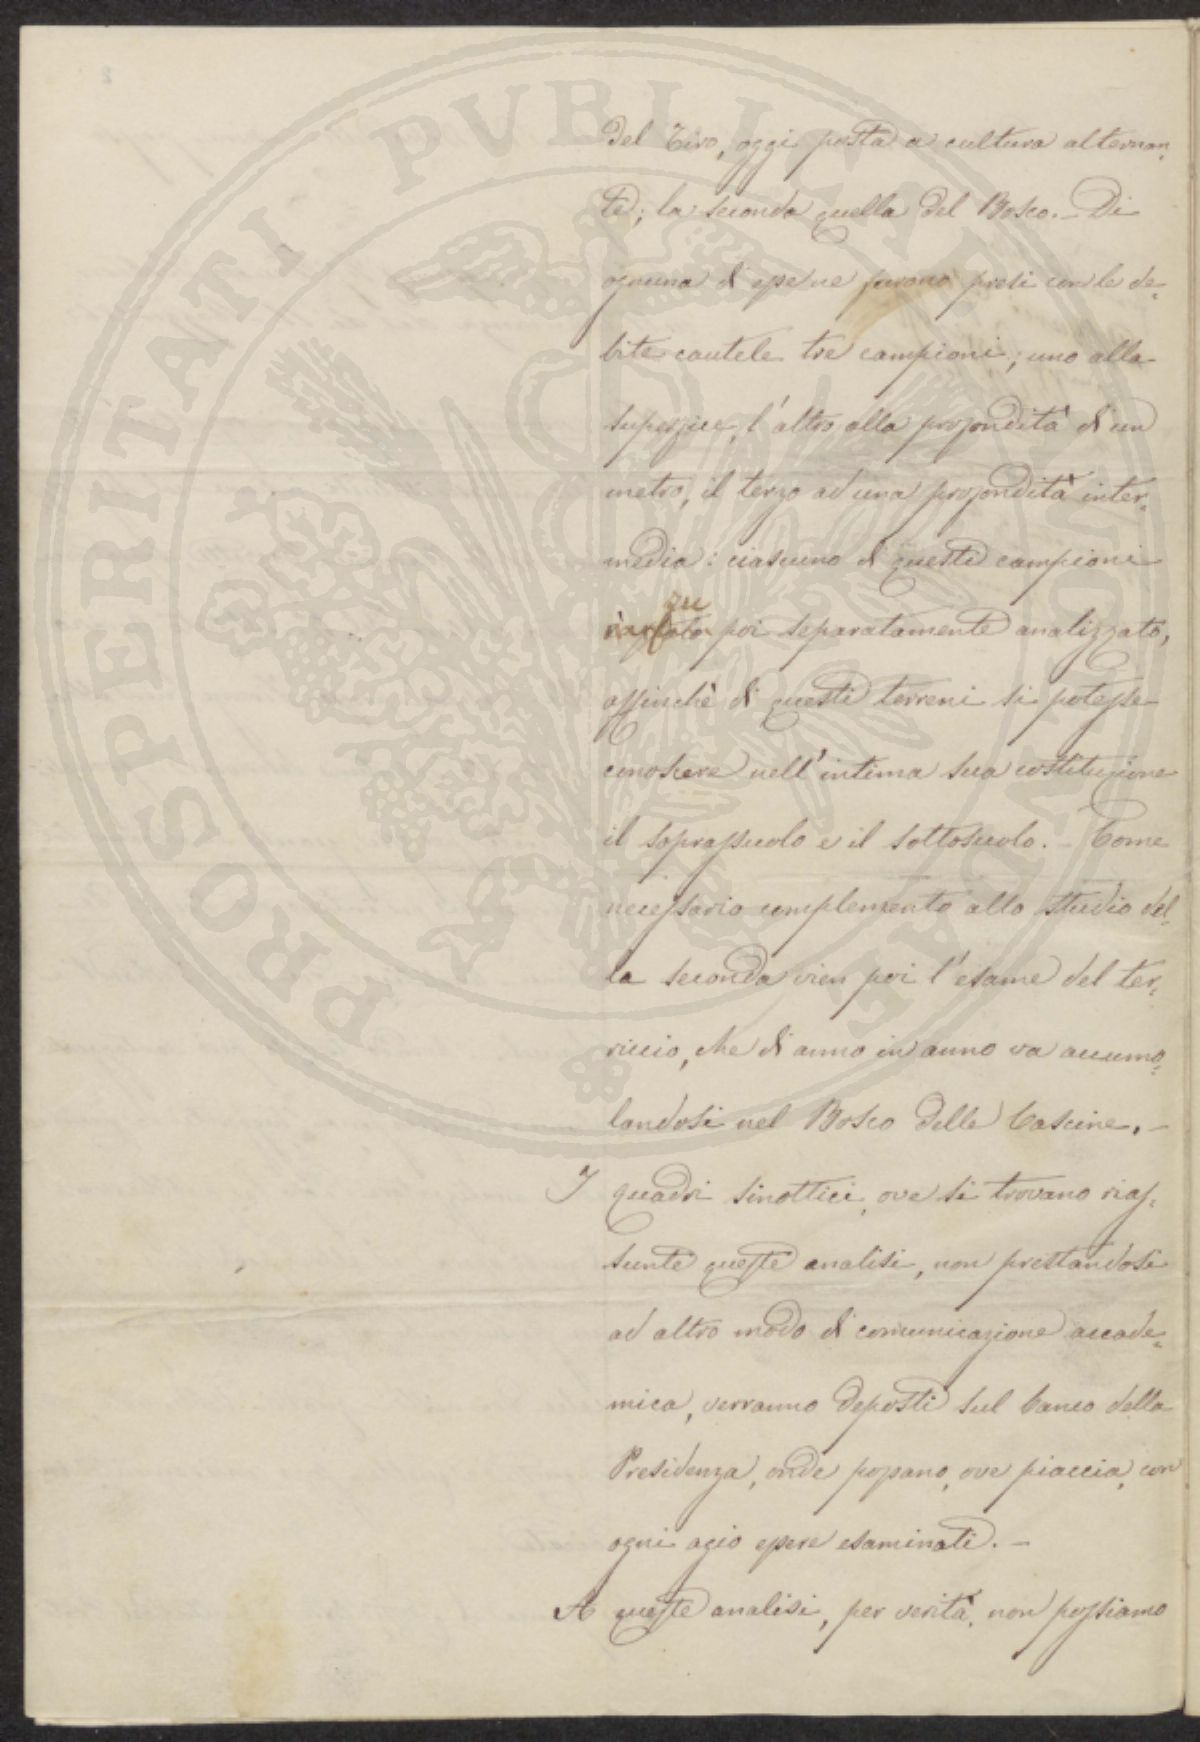 PROSPERITATI PUBLICAE AUGENDAE
del Tiro, oggi posta a cultura alternan-
te; la seconda quella del Bosco. - Di
ognuna di esse ne furono presi con le de-
bite cautele tre campioni; uno alla
superficie, l'altro alla profondità di un
metro, il terzo ad una profondità inter-
media: ciascuno di questi campioni
fu poi separatamente analizzato,
affinchè di questi terreni si potesse
conoscere nell'intima sua costituzione
il soprassuolo e il sottosuolo. - Come
necessario complemento allo studio del-
la seconda vien poi l'esame del ter-
riccio, che di anno in anno va accumo-
landosi nel Bosco delle Cascine. -
I quadri sinottici, ove si trovano rias-
sunte queste analisi, non prestandosi
ad altro modo di comunicazione accade-
mica, verranno deposti sul banco della
Presidenza, onde possano, ove piaccia, con
ogni agio essere esaminati. -
A queste analisi, per verità, non possiamo